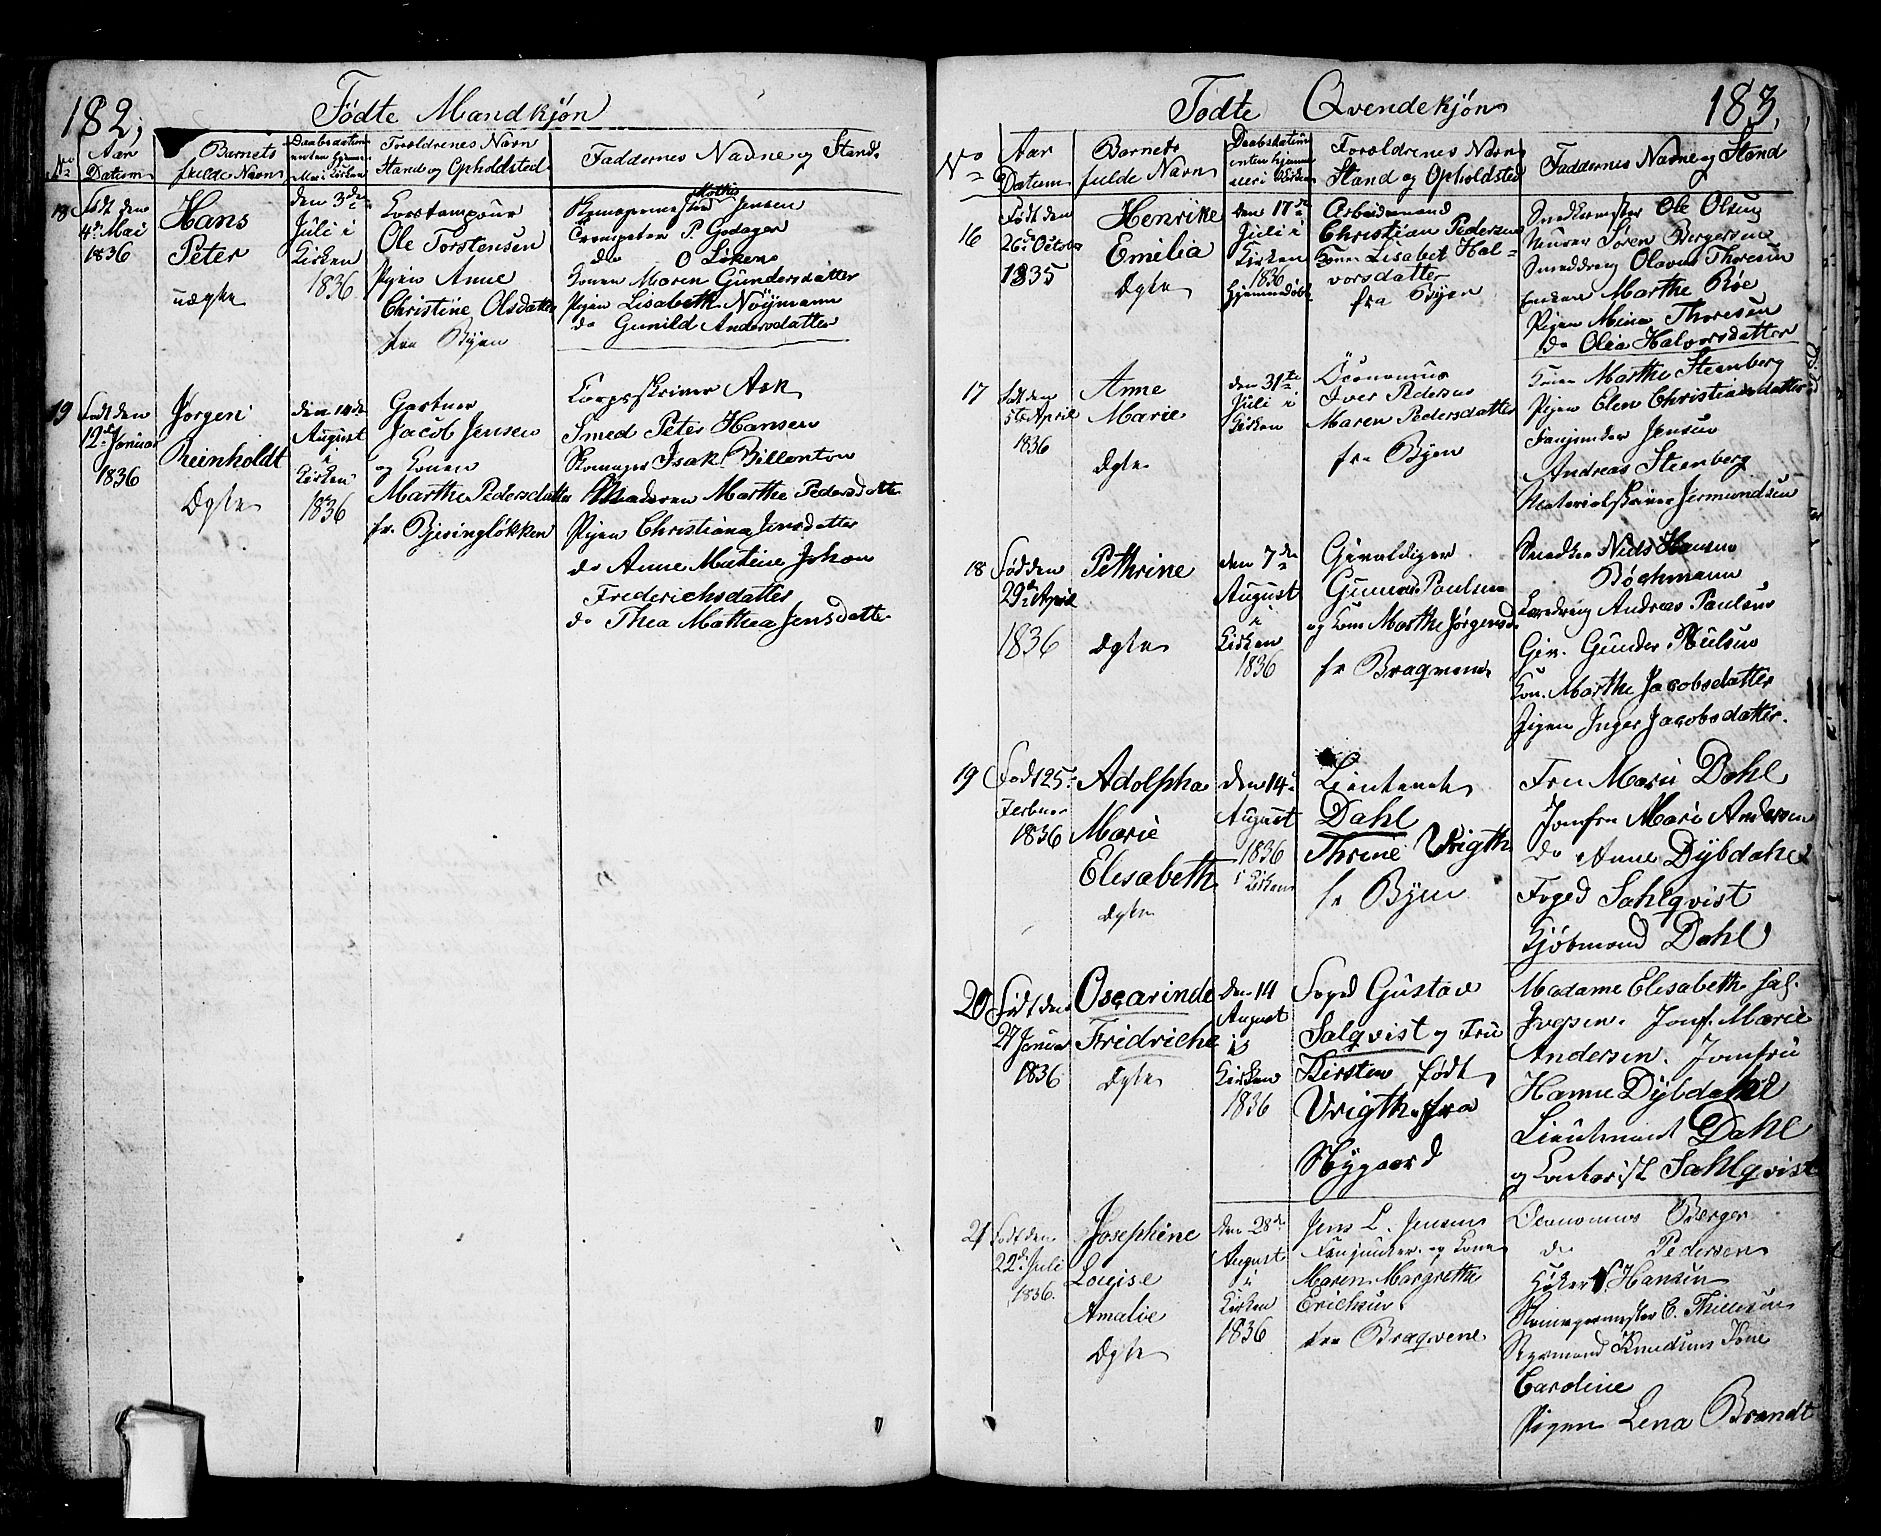 182,
Fødte Mandkjøn
No
Aar
Datum
Barnets
fulde Navn
Daabsdatum
enten hjemme
eller i Kirken
Forældrenes Navn
Stand og Opholdsted
Faddernes Navne og Stand
18
Født den
4de Mai
1836
Hans
Peter
uægte
den 3de
Juli i
Kirken
1836
Ole Torstensen
Pigen Anne
Christine Olsdatter
fra Byen
Mathis
Jensen
P. Godager
do O Løken
Konen Maren Gundersdatter
Pigen Lisabeth Nöÿmann
do Gunild Andersdatter
19
Født den
12te Januar
1836
Jørgen
Reinholdt
Ægte
den 14de
August
i
Kirken
1836
Gartner
Jacob Jensen
og Konen
Marthe Pedersdatter
fr. Bjesingløkken
Corpsskriver Ask
Smed Peter Hansen
Skomager Isak Billonton
Marthe Pedersdatter
Pigen Christiana Jensdatter
do Anne Matine Johan
Frederichsdatter
do Thea Mathea Jensdatter
Fødte Qvendekjøn
183,
No
Aar
Datum
Barnets
fulde Navn
Daabsdatum
enten hjemme
eller i Kirken
Forældrenes Navn
Stand og Opholdsted
Faddernes Navne og Stand
16
Født den
26de October
1835
Henrike
Emilia
Ægte
den 17de
Juli i
Kirken
1836
Hjemmedøbt
Arbeidsmand
Christian Pedersen
Konen Lisabet Hal-
vorsdatter
fra Byen
Snedkermester Ole Olsen
Murer Søren Bergersen
Smeddreng Olavus Thoresen
Enken Marthe Röe
Pigen Mina Thoresen
do Olea Halvorsdatter
17
Født den
5te April
1836
Anne
Marie
Ægte
den 31te
Juli i
Kirken
Öconomus
Iver Pedersen
Maren Pedersdatter
fra Byen
Konen Marthe Steenberg
Pigen Elen Christiansdatter
Fanjunker Jensen
Andreas Steenberg
Materialskriver Jermundsen
18
Fød den
29de April
1836
Pethrine
Ægte
den 7de
August
i
Kirken
1836
Gevaldiger
Gunder Paulsen
og Kone Marthe Jørgensd.
fr Bragvene
Snedker Niels Hansen
Bøchmann
Læredreng Andreas Paulsen
Gev. Gunder Paulsen
Kon. Marthe Jacobsdatter
Pigen Inger Jacobsdatter.
19
Født 25.
Februar
1836
Adolpha
Marie
Elisabeth
Ægte
den 14.
August
1836
i Kirken
Lieutenant
Dahl
Thrine Vrigth
fr Byen
Fru Marie Dahl
Jomfru Marie Andersen
do Anne Dÿbdahl
Foged Sahlqvist
Kjøbmand Dahl
20
Født den
27 Januar
1836
Oscarinde
Fridriche
Ægte
den 14
August
i
Kirken
1836
Foged Gustav
Salqvist og Fru
Kirsten født
Vrigth fra
Nygaard
Madame Elisabeth sal.
Jomf. Marie
Andersen. Jomfru
Hanne Dÿbdahl
Lieutenant Dahl
og Contorist Sahlqvist
21
Født den
22de Juli
1836.
Josephine
Lovise
Amalie
Ægte
den 28de
August
i
Kirken
1836
Jens L. Jensen
Fanjunker og Kone
Maren Margrethe
Erichsen
fra Bragvene
Oeconomus Berger
do Pedersen
Høker Hansen
C. Thillesen
Styrmand Knudsens Kone
Caroline
Pigen Lena Brandt